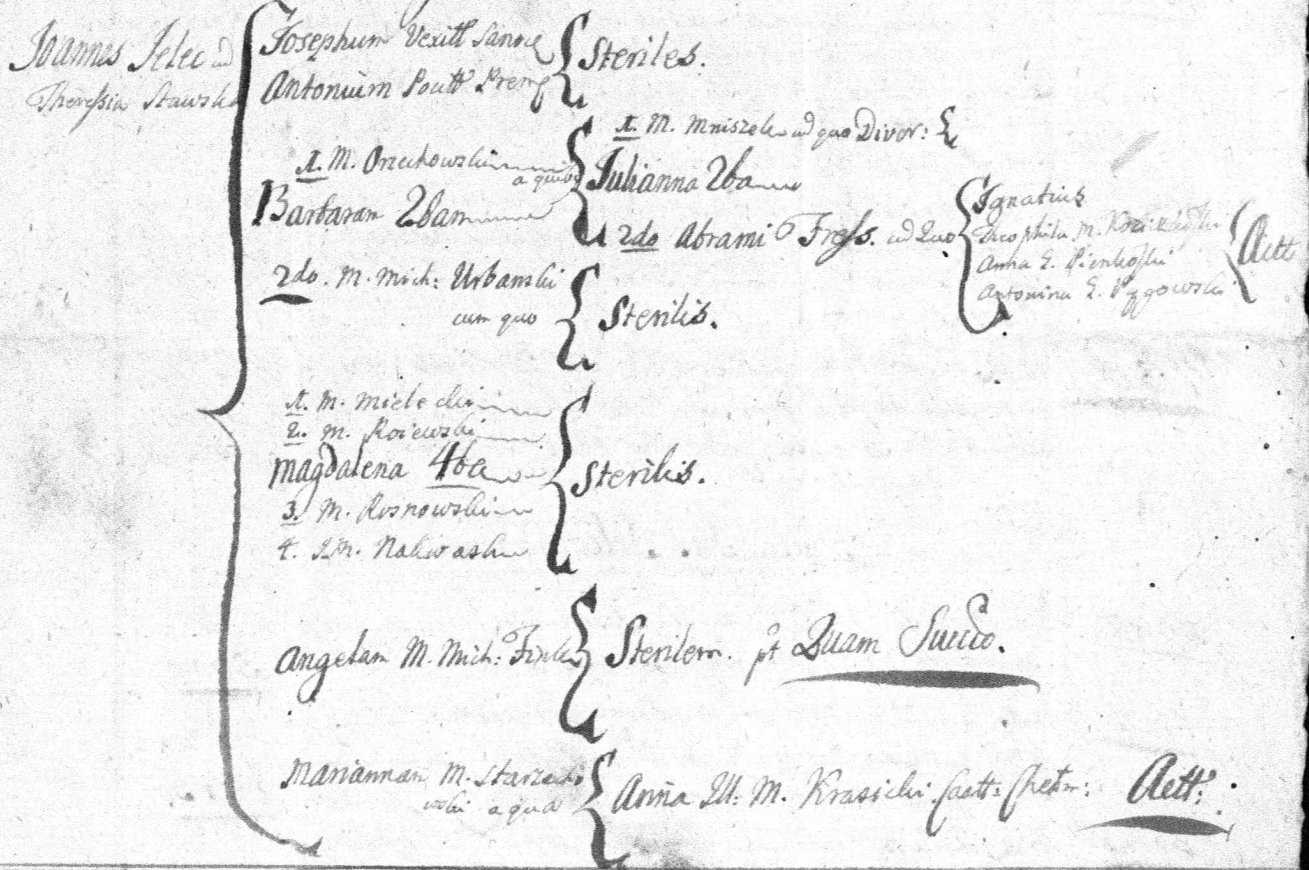 Joannes Jelec ad
Theressia Stawska
Josephum Vexill Sanoc
Antonium Poutt Prem
Steriles.
1. M. Orzechowski
a quibus
Barbaram 2bam
1. M. Mniszek ad quo Divor:
Julianna 2ba
2do Abrami Fress. ad Quo
Ignatius
Theophila M.
Anna E.
Antonina E.
Aett
2do. M. Mich: Urbanski
cum quo
Sterilis.
1. M. Mielecki
2. M. Roiewski
Magdalena 4ta
3. M. Rosnowski
4. I.M. Nakwaski
Sterilis.
Angelam M. Mich: Finke
Sterilem. pt Quam Succo.
Mariannam M. Starze
wski a qua
Anna Ill: M. Krasicki Castt: Chelm: Aett: